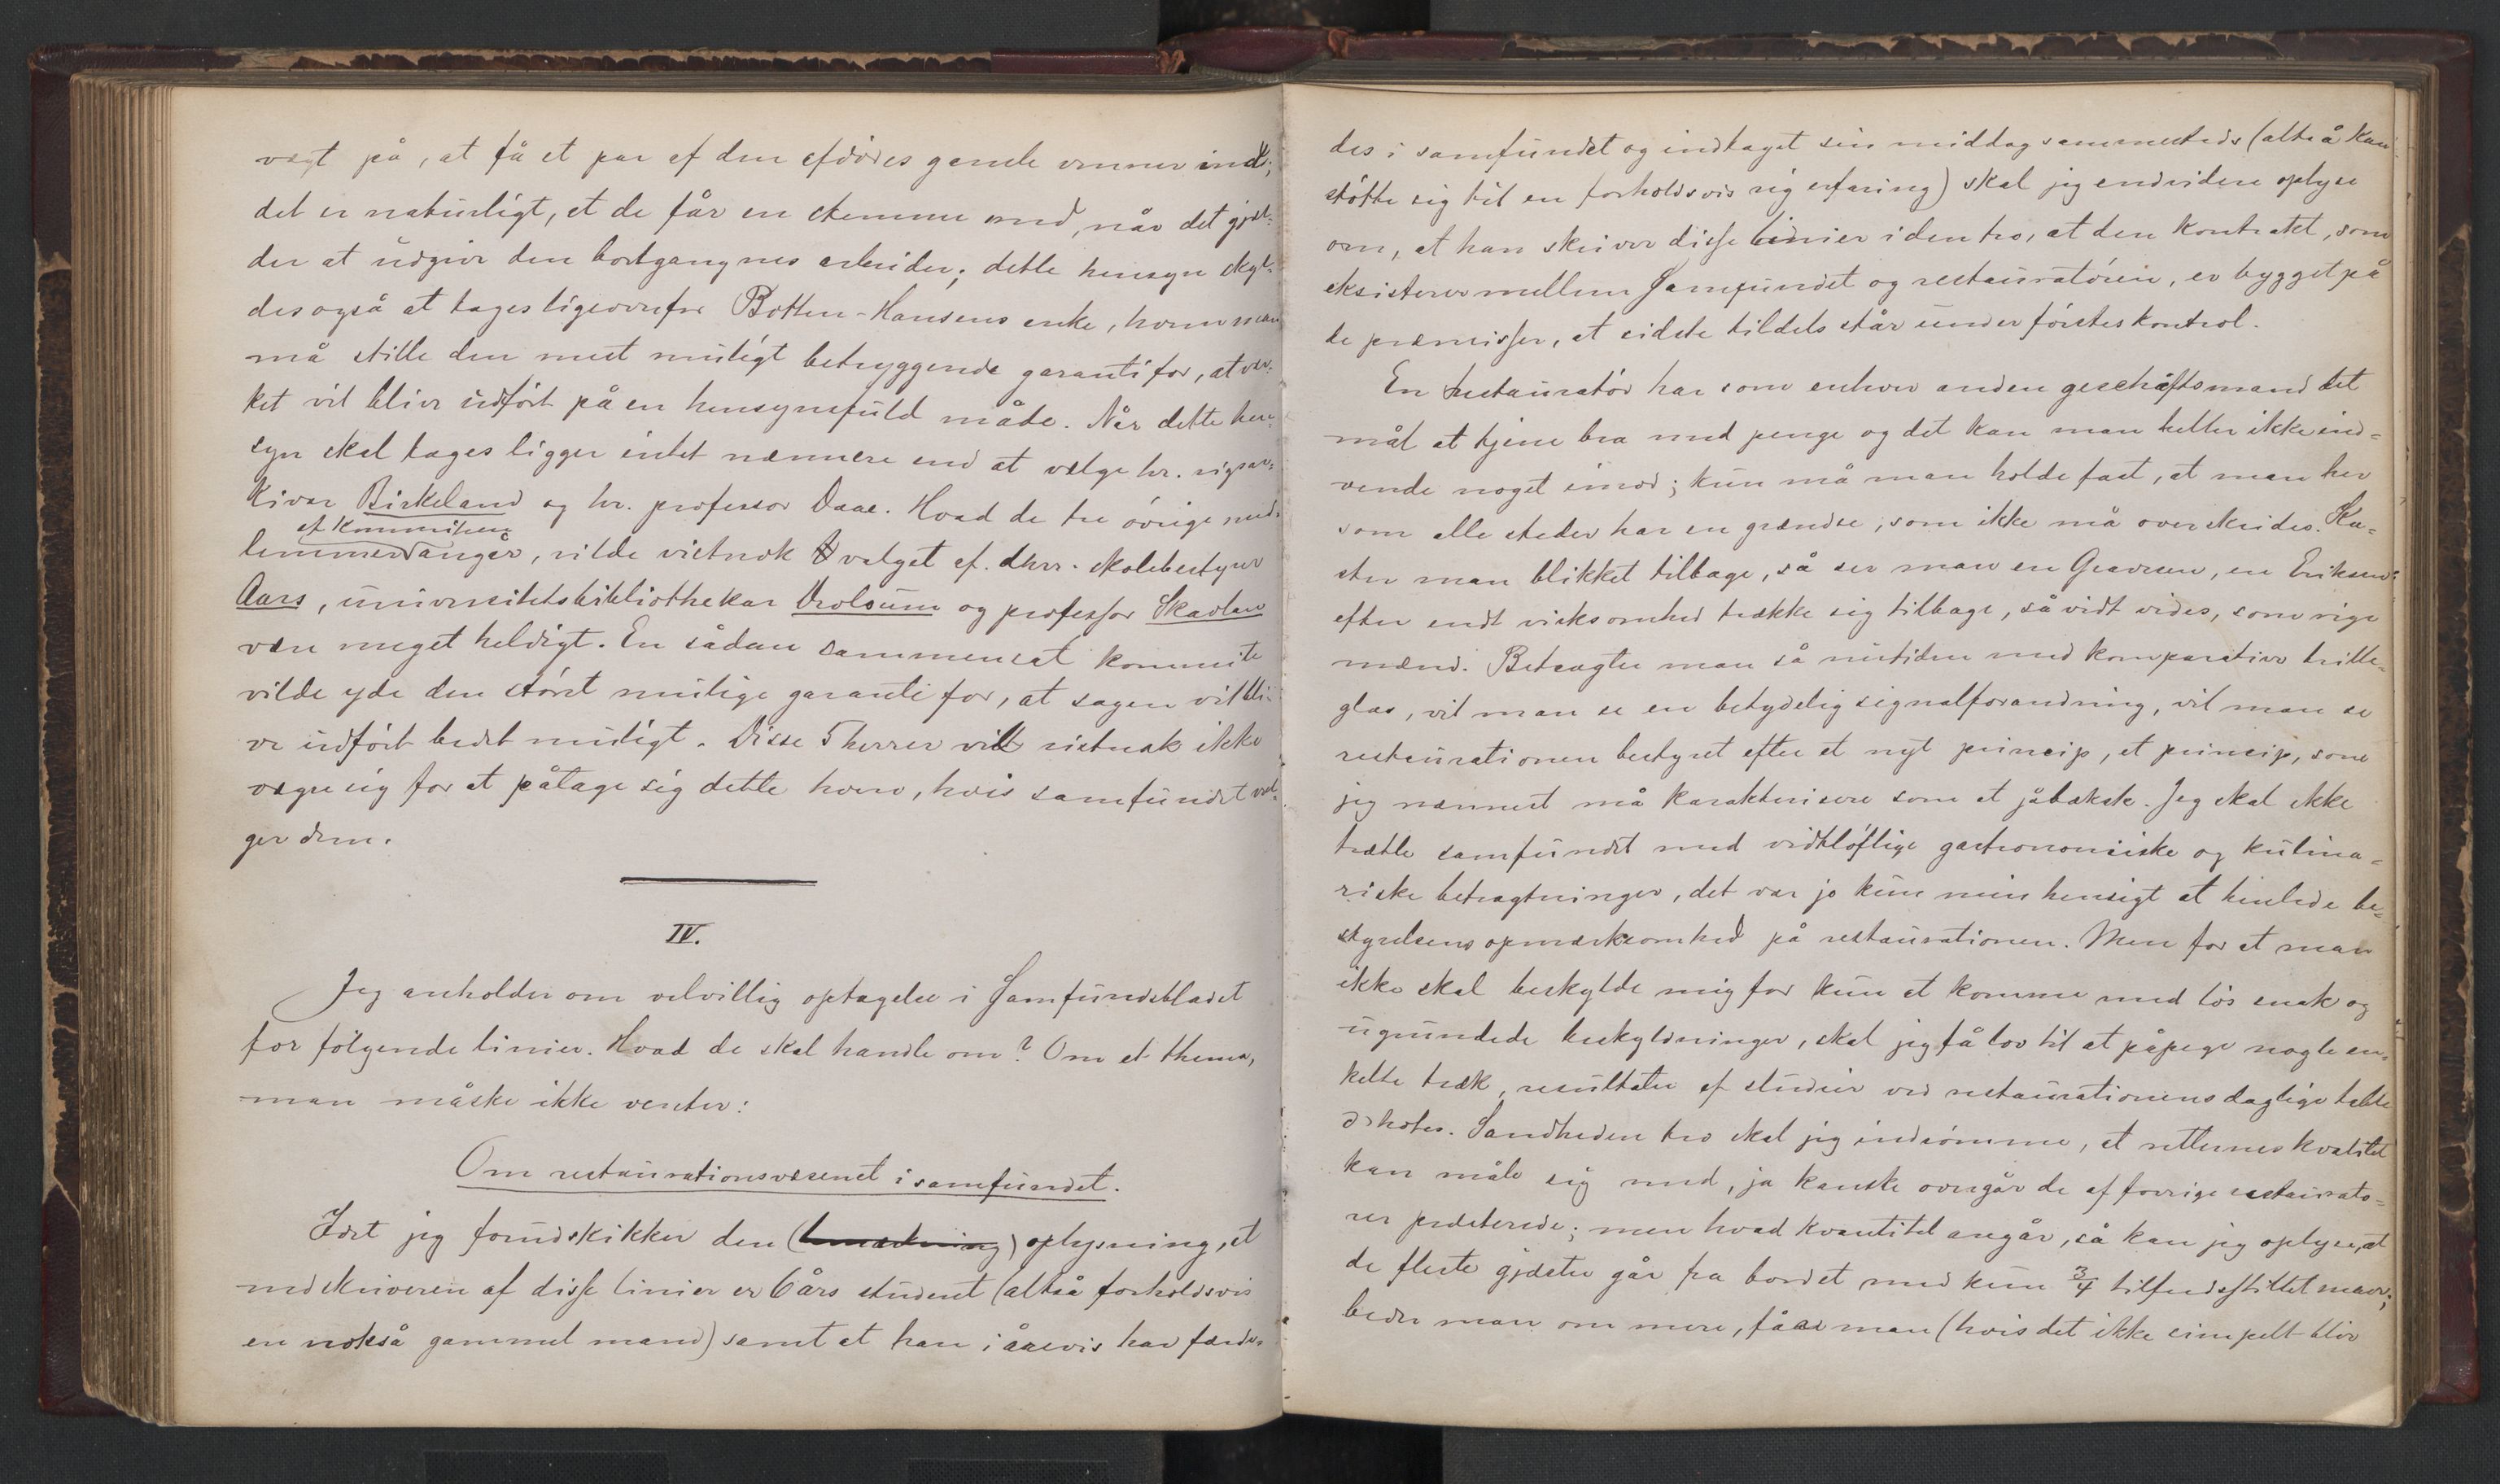 vægt på, at få et par af den afdødes gamle venner ind;
det er naturligt, at de får en stemme med, når det gjæl-
der at udgive den bortgangnes arbeider; dette hensyn skyl-
des også at tages ligeoverfor Botten-Hansens enke, hvem man
må stille den mest muligt betryggende garanti for, at vær-
ket vil blive udført på en hensynsfuld måde. Når dette hen-
syn skal tages ligger intet nærmere end at vælge hr. rigsar-
kivar Birkeland og hr. professor Daae. Hvad de tre øvrige med-
af kommiteen
lemmer angår, vilde vistnok valget af dhrr. skolebestyrer
Aars, universitetsbibliothekar Drolsum og professor Skavlan
være meget heldigt. En sådan sammensat kommite
vilde yde den størst mulige garanti for, at sagen vil bli-
ve udført bedst muligt. Disse 5 herrer vil vistnok ikke
vægre sig for at påtage sig dette hverv, hvis samfundet væl-
ger dem.
IV.
Jeg anholder om velvillig optagelse i Samfundsbladet
for følgende linier. Hvad de skal handle om? Om et thema,
man måske ikke venter:
Om restaurationsvæsenet i samfundet.
Idet jeg forudskikker den (bemærkning) oplysning, at
nedskriveren af disse linier er 6 års student (altså forholdsvis
en nokså gammel mand) samt at han i åarevis har færde-
des i samfundet og indtaget sin middag sammesteds (altså kan
støtte sig til en forholdsvis rig erfaring) skal jeg endvidere oplyse
om, at han skriver disse linier i den tro, at den kontrakt, som
eksisterer mellem Samfundet og restauratøren, er bygget på
de præmisser, at sidste tildels står under førstes kontrol.
En restauratør har som enhver anden geschäftsmand det
mål at tjene bra med penge og det kan man heller ikke ind-
vende noget imod; kun må man holde fast, at man her
som alle steder har en grændse, som ikke må overskrides. Ka-
ster man blikket tilbage, så ser man en Gravesen, en Eriksen
efter endt virksomhed trække sig tilbage, så vidt vides, som rige
mænd. Betragter man så nutiden med komparative brille-
glas, vil man se en betydelig signalforandring, vil man se
restaurationen bestyret efter et nyt princip, et princip, som
jeg nærmest må karakterisere som et jåbakak. Jeg skal ikke
trætte samfundet med vidtløftige gastronomiske og kulina-
riske betragtninger, det var jo kun min hensigt at henlede be-
styrelsens opmærksomhed på restaurationen. Men for at man
ikke skal beskylde mig for kun at komme med løs snak og
ugrundede beskyldninger, skal jeg få lov til at påpege nogle en-
kelte træk, resultater af studier ved restaurationens daglige table
d'hotes. Sandheden tro skal jeg indrømme, at retternes kvalitet
kan måle sig med, ja kanske overgår de af forrige restaurato-
rer præsterede; men hvad kvantitet angår, så kan jeg oplyse, at
de fleste gjæster går fra bordet med kun 3/4 tilfredsstillet mave;
beder man om mere, fåar man (hvis det ikke simpelt blir